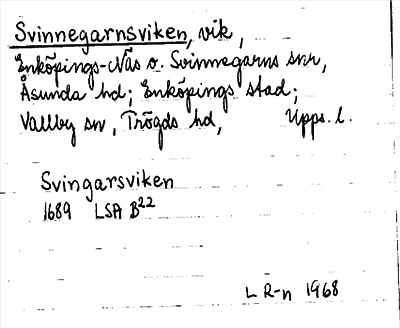 Svinnegarnsviken, vik,
Enköpings-Näs o. Svinnegarns snr,
Åsunda hd; Enköpings stad;
Vallby sn, Trögds hd, Upps. l.
Svingarsviken
1689 LSA B22
L R-n 1968